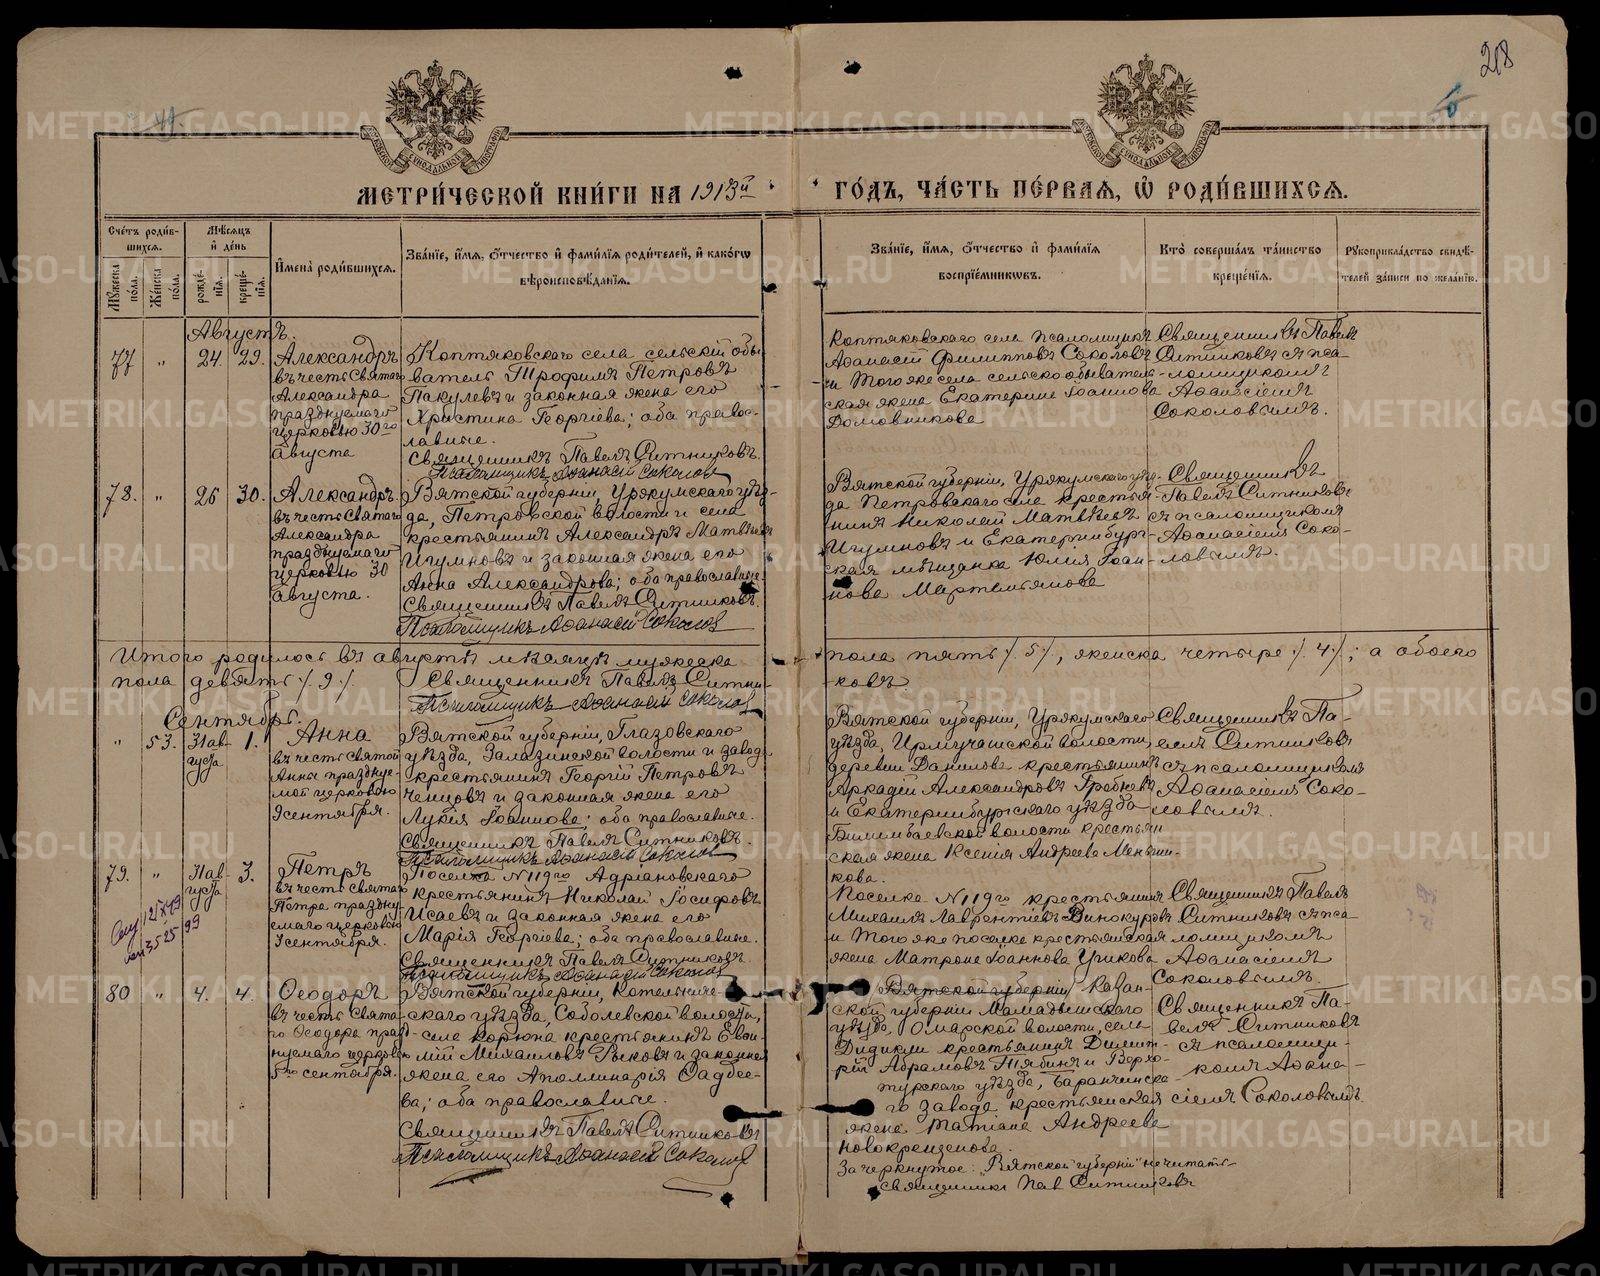 218
МЕТРИ́ЧЕСКОЙ КНИ́ГИ НА 1913й ГО́ДЪ, ЧА́СТЬ ПЕ́РВАЯ, Ѡ РОДИ́ВШИХСЯ.
Сче́тъ роди́в-
шихся.
Мѣ́сяцъ
и де́нь
Му́жеска по́ла.
Же́нска по́ла.
рожде́нїя.
креще́нїя.
Имена̀ роди́вшихся.
Зва́нїе, и́мя, о́тчество и фами́лїя роди́телей, и како́гѡ
вѣроисповѣ́данїя.
Зва́нїе, и́мя, о́тчество и фами́лїя
воспрїе́мникѡвъ.
Кто̀ соверша́лъ та́инство
креще́нїя.
Рукоприкла́дство свидѣ́-
телей за́писи по жела́нїю.
Августъ.
77 " 24. 29.
Александръ
въ честь Святаго
Александра
празднуемаго
церковью 30го
Августа
Коптяковскаго села сельскій обы-
ватель Трофимъ Петровъ
Пакулевъ и законная жена его
Христина Георгіева; оба правос-
лавные.
Священникъ Павелъ Ситниковъ.
Псаломщикъ Аѳанасій Соколов
Коптяковскаго села псаломщикъ
Аѳанасій Филипповъ Соколовъ
и того же села сельско обыватель-
ская жена Екатерина Іоаннова
Домовникова
Священникъ Павелъ
Ситниковъ съ пса-
ломщикомъ
Аѳанасіемъ
Соколовымъ.
78. " 26 30.
Александръ
въ честь Святаго
Александра
празднуемаго
церковью 30
Августа.
Вятской губерніи, Уржумскаго уѣз-
да, Петровской волости и села
крестьянинъ Александръ Матвѣевъ
Игумновъ и законная жена его
Анна Александрова; оба православные.
Священникъ Павелъ Ситниковъ.
Псаломщикъ Аѳанасій Соколов
Вятской губерніи, Уржумскаго уѣз-
да Петровскаго села крестья-
нинъ Николай Матвѣевъ
Игумновъ и Екатеринбург-
ская мѣщанка Юлія Іоан-
нова Мартемьянова
Священникъ
Павелъ Ситниковъ
съ псаломщикомъ
Аѳанасіемъ Соко-
ловымъ.
Итого родилось въ августѣ мѣсяцѣ мужеска пола пять /5/, женска четыре /4/; а обоего
пола девять /9/. Священникъ Павелъ Ситни-
ковъ.
Псаломщикъ Аѳанасій Соколов
Сентябрь.
" 53. 31 Августа 1.
Анна
въ честь Святой
Анны праздуе-
мой церковью
9 сентября.
Вятской губерніи, Глазовскаго
уѣзда, Залазинской волости и завода
крестьянинъ Георгій Петровъ
Ченцовъ и законная жена его
Лукія Іоаннова; оба православные.
Священникъ Павелъ Ситниковъ.
Псаломщикъ Аѳанасій Соколов
Вятской губерніи, Уржумскаго
уѣзда, Ирмучашской волости,
деревни Данилова крестьянинъ
Аркадій Александровъ Гребневъ
и Екатеринбургскаго уѣзда
Билимбаевской волости крестьян-
ская жена Ксенія Андреева Меньши-
кова.
Священникъ Па-
велъ Ситниковъ
съ псаломщикомъ
Аѳанасіемъ Соко-
ловымъ.
79. " 31 Августа 3.
Петръ
въ честь святаго
Петра праздну-
емаго церковью
сентября.
Поселка N 119го Адріановскаго
крестьянинъ Николай Іосифовъ
Исаевъ и законная жена его
Марія Георгіева; оба православные.
Священникъ Павелъ Ситниковъ.
Псаломщикъ Аѳанасій Соколов
Поселка N 119го крестьянинъ
Михаилъ Лаврентіевъ Винокуровъ
и того же поселка крестьянская
жена Матрона Іоаннова Учикова
Священникъ Павелъ
Ситниковъ съ пса-
ломщикомъ
Аѳанасіемъ
Соколовымъ.
80 " 4. 4.
Ѳеодоръ
въ честь Свята-
го Ѳеодора праз-
нуемаго церковью
5го сентября.
Вятской губерніи, Котельниче-
скаго уѣзда, Соболевской волости,
села Корюна крестьянинъ
Михаиловъ Рыковъ и законная
жена его Аполлинарія Ѳадѣе-
ва; оба православные.
Священникъ Павелъ Ситниковъ
Псаломщикъ Аѳанасій Соколов
Вятской губерніи Казан-
ской губерніи Мамадышскаго
уѣзда, Омарской волости, села
крестьянинъ Димит-
рій Абрамовъ Тябинъ и Верхо-
турскаго уѣзда, Баранчинска-
го завода крестьянская
жена Татіана Андреева
Новокрещенова.
Зачеркнутое: "Вятской губерніи" не читать
Священникъ Пав Ситниковъ
Священникъ Па-
велъ Ситниковъ
съ псаломщи-
комъ Аѳана-
сіемъ Соколовымъ.
METRIKI.GASO-URAL.RU